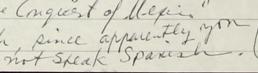 e Conquest of Mexico"
h, since apparently you
not speak Spanish. (